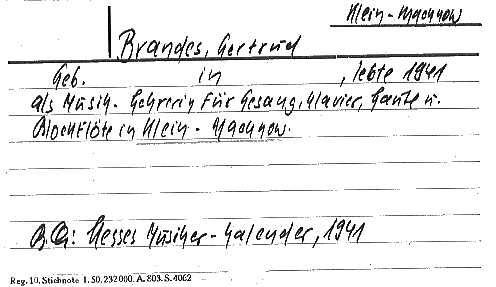 Klein-Machnow
Brandes, Gertrud
Geb. in , lebte 1941
als Musik-Lehrerin für Gesang, Klavier, Laute u.
Blockflöte in Klein-Machnow.
B.Q: Hesses Musiker-Kalender, 1941
Reg. 10. Stichnote 1. 50. 232000. A. 803. S. 4062